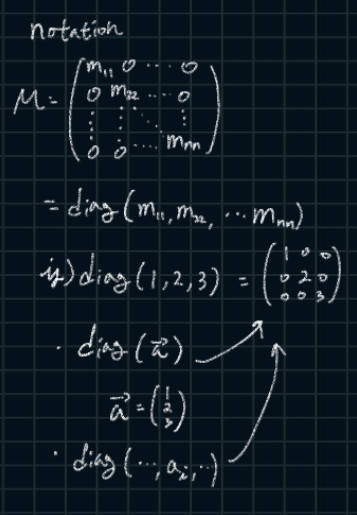 notation
M = ( m₁₁ 0 ⋯ 0
0 m₂₂ ⋯ 0
⋮ ⋮ ⋱ ⋮
0 0 ⋯ mₙₙ )
= diag (m₁₁, m₂₂, ⋯ mₙₙ)
diag (1, 2, 3) = ( 1 0 0
0 2 0
0 0 3 )
· diag (a⃗)
a⃗ = ( 1
2
3 )
· diag (⋯, aᵢ, ⋯)